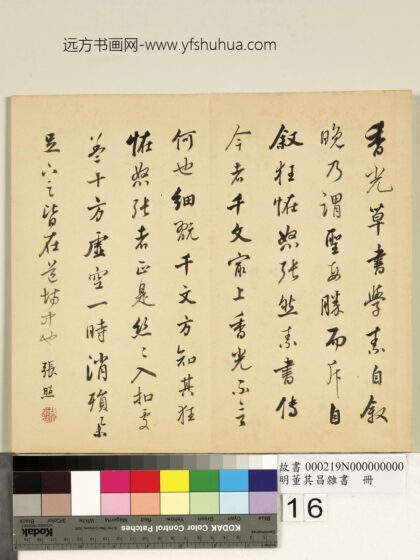 远方书画网-www.yfshuhua.com
香光草書學素自叙
晚乃謂聖母勝而斥自
叙狂怪怒張然素書傳
今者千文最上香光不言
何也細翫千文方知其狂
怪怒張者正是絲〻入扣處
十方虛空一時消殞
足下皆在道場中也 張照
KODAK Color Control Patches
Blue Cyan Green Yellow Red Magenta White 3/Color Black
故書 000219N000000000
明董其昌雜書 冊
16